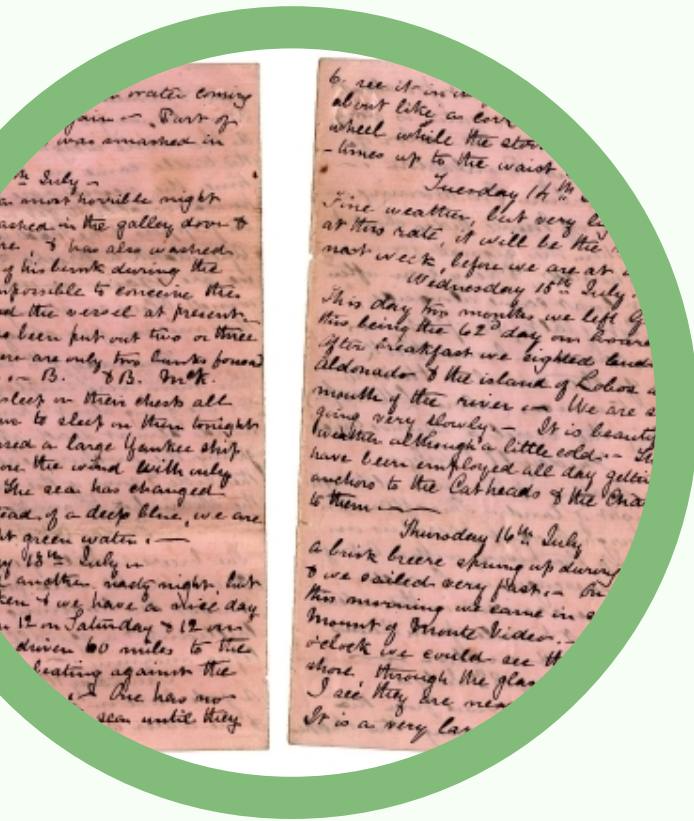 water coming
gain - Part of
was smashed in
th July -
a most horrible night
ashed in the galley door &
re, & has also washed
of his bunk during the
mpossible to conceive the
nd the vessel at present.
s been put out two or three
ere are only two bunks
- B. & B. McK.
sleep on their chests all
to sleep on them tonight
sed a large Yankee ship
ore the wind with only
The sea has changed
ead of a deep blue, we are
ht green water. -
y 13th July -
another nasty night, but
ken & we have a nice day
12 on Saturday & 12 on
driven 60 miles to the
beating against the
- One has no
sea until they
6. see it in
about like a cork
wheel while the stor
-times up to the waist
Tuesday 14th
Fine weather, but very li
at this rate, it will be the
next week, before we are at
Wednesday 15th July -
This day two months we left
this being the 62d day on board
After breakfast we sighted land
aldonado & the island of Lobos
mouth of the river - We are s
going very slowly - It is beauti
weather although a little cold -
have been employed all day getti
anchors to the Catheads & the Cha
to them -
Thursday 16th July
A brisk breeze sprung up during
& we sailed very fast. -
this morning we came in s
Mount of Monte Video. -
o'clock we could see th
shore, through the glas
I see they are nea
It is a very lar